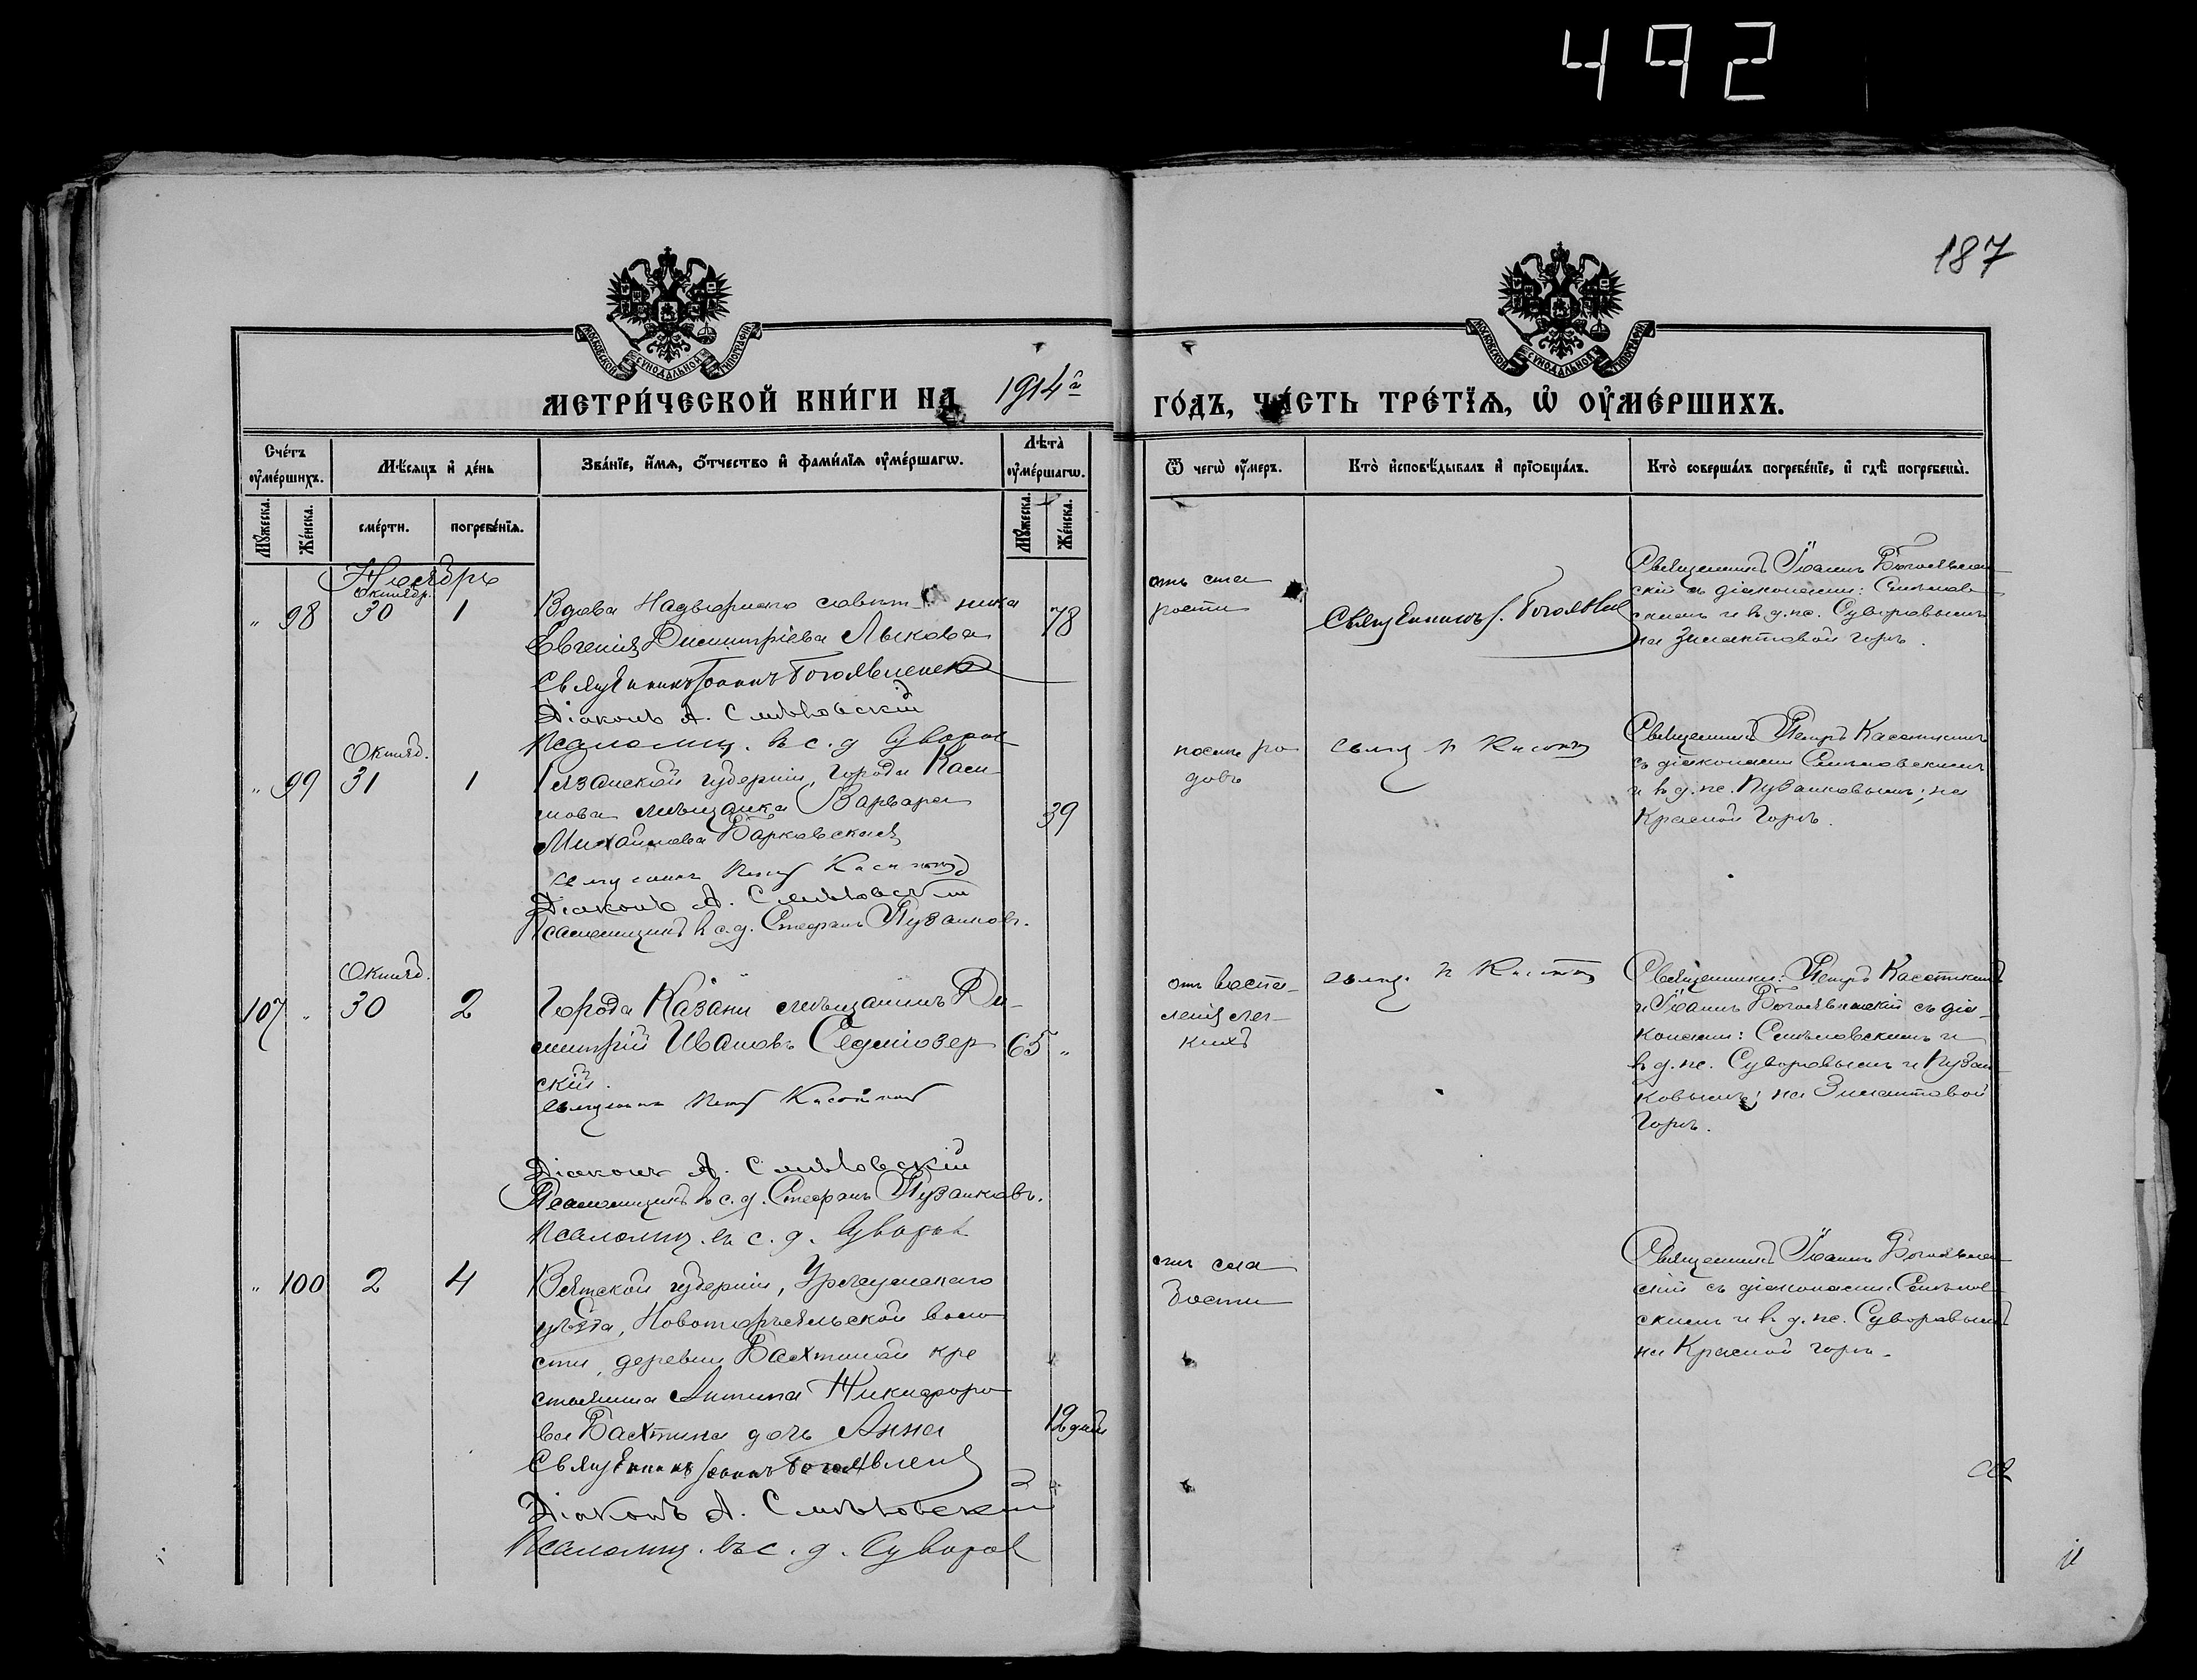 492
187
МОСКОВСКОЙ СѴНОДАЛЬНОЙ ТИПОГРАФІИ
МОСКОВСКОЙ СѴНОДАЛЬНОЙ ТИПОГРАФІИ
МЕТРИ́ЧЕСКОЙ КНИ́ГИ НА 1914й
ГО́ДЪ, ЧА́СТЬ ТРЕ́ТЇѦ, Ѡ҆ ОУ҆МЕ́РШИХЪ.
Сче́тъ оу҆ме́ршихъ.
Мѣ́сяцъ и҆ де́нь
Зва́нїе, и҆́мѧ, ѻ҆́тчество и҆ фами́лїѧ оу҆ме́ршагѡ.
Лѣ́та̀ оу҆ме́ршагѡ.
Ѿ чегѡ̀ оу҆́меръ.
Кто̀ и҆сповѣ́дывалъ и҆ прїѡбща́лъ.
Кто̀ соверша́лъ погребе́нїе, и҆ гдѣ̀ погребены̀.
Мꙋ́жеска.
Же́нска.
сме́рти.
погребе́нїѧ.
Мꙋ́жеска.
Же́нска.
Ноябрь
Октябр.
" 98 30 1
Вдова Надворнаго совѣтника
Евгенія Димитріева Лыкова
78
Священникъ Іоаннъ Богоявленск
Діаконъ А. Смѣловскій
Псаломщ. въ с. д Суворов
отъ ста
рости
Священникъ І. Богоявлен
Священникъ Іоаннъ Богоявлен
скій съ діаконами: Смѣлов
скимъ и въ д. пс. Суворовымъ
на Зилантовой горѣ.
Октяб.
" 99 31 1
Рязанской губерніи, города Каси
мова мѣщанка Варвара
Михайлова Барковская
39
священникъ Петръ Касаткинъ
Діаконъ А. Смѣловскій
Псаломщикъ въ с. д. Стефанъ Пузанковъ.
послѣ ро
довъ
свящ П Касатк
Священникъ Петръ Касаткинъ
съ діаконами Смѣловскимъ
и въ д. пс. Пузанковымъ; на
Красной Горкѣ.
Октяб.
107 " 30 2
Города Казани мѣщанинъ Ди-
митрій Ивановъ Седміозер
скій.
65 "
священникъ Петръ Касаткин
Діаконъ А. Смѣловскій
Псаломщикъ въ с. д. Стефанъ Пузанковъ.
Псаломщ. въ с. д. Суворов
отъ воспа-
ленія лег-
кихъ
свящ. П Касатк
Священники: Петръ Касаткинъ
и Іоаннъ Богоявленскій съ діа-
конами: Смѣловскимъ и
въ д. пс. Суворовымъ и Пузан
ковымъ; на Зилантовой
Горѣ.
" 100 2 4
Вятской губерніи, Уржумскаго
уѣзда, Новоторъяльской воло
сти, деревни Бахтиной кре
стьянина Антипа Никифоро
ва Бахтина дочь Анна
12 дней
Священникъ Іоаннъ Богоявлен
Діаконъ А. Смѣловскій
Псаломщ. въ с. д. Суворов
отъ сла
бости
Священникъ Іоаннъ Богоявлен
скій съ діаконами Смѣлов
скимъ и въ д. пс. Суворовымъ
на Красной горкѣ.